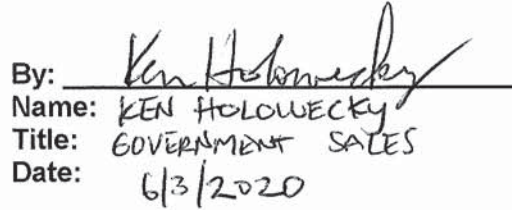 By: Ken Holowecky
Name: KEN HOLOWECKY
Title: GOVERNMENT SALES
Date: 6/3/2020